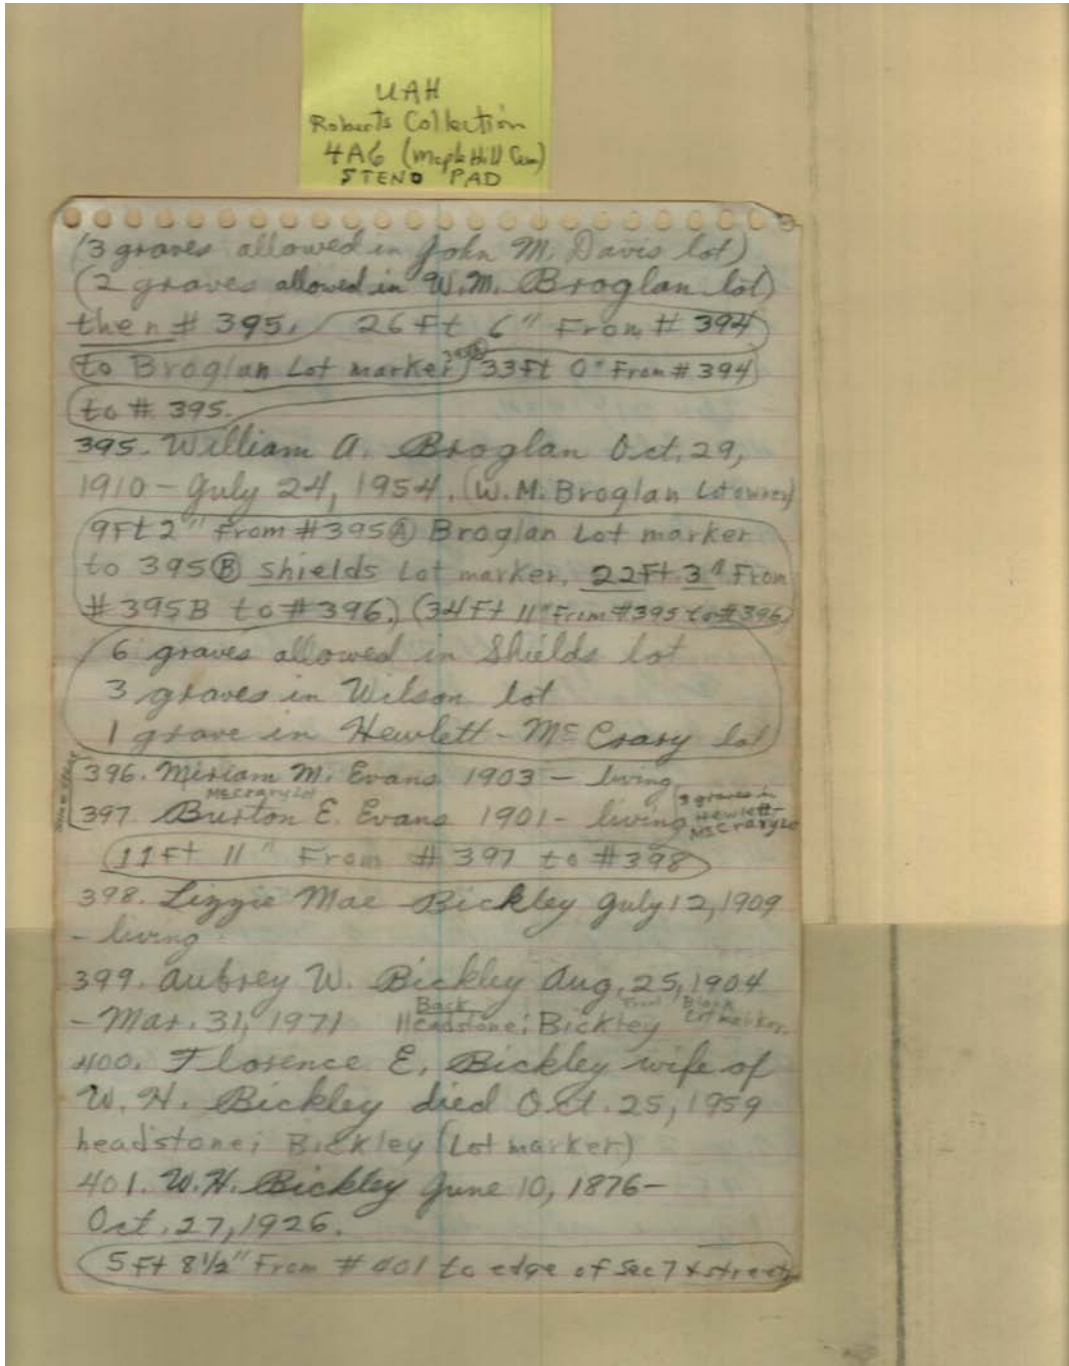 UAH
Roberts Collection
4A6 (Maple Hill Cem)
STENO PAD
(3 graves allowed in John M. Davis lot)
(2 graves allowed in W.M. Broglan lot)
then # 395. 26 Ft 6" From # 394
to Broglan Lot marker 395A 33 Ft 0" From # 394
to # 395.
395. William A. Broglan Oct. 29,
1910 - July 24, 1954. (W.M. Broglan Lot owner)
9 Ft 2" From #395 A Broglan Lot marker
to 395 B Shields Lot marker. 22 Ft 3" From
# 395B to # 396.) (34 Ft 11" From #395 to #396)
6 graves allowed in Shields lot
3 graves in Wilson lot
1 grave in Hewlett - McCrary lot
396. Miriam M. Evans 1903 - living
McCrary Lot
3 graves in
Hewlett-
McCrary Lot
397. Burton E. Evans 1901 - living
11 Ft 11" From # 397 to # 398
398. Lizzie Mae Bickley July 12, 1909
- living
399. Aubrey W. Bickley Aug. 25, 1904
Back Front Black
- Mar. 31, 1971 Headstone; Bickley Lot marker.
400. Florence E. Bickley wife of
W. H. Bickley died Oct. 25, 1959
headstone; Bickley (Lot marker)
401. W. H. Bickley June 10, 1876 -
Oct. 27, 1926.
5 Ft 8 1/2" From # 401 to edge of Sec 7 & street